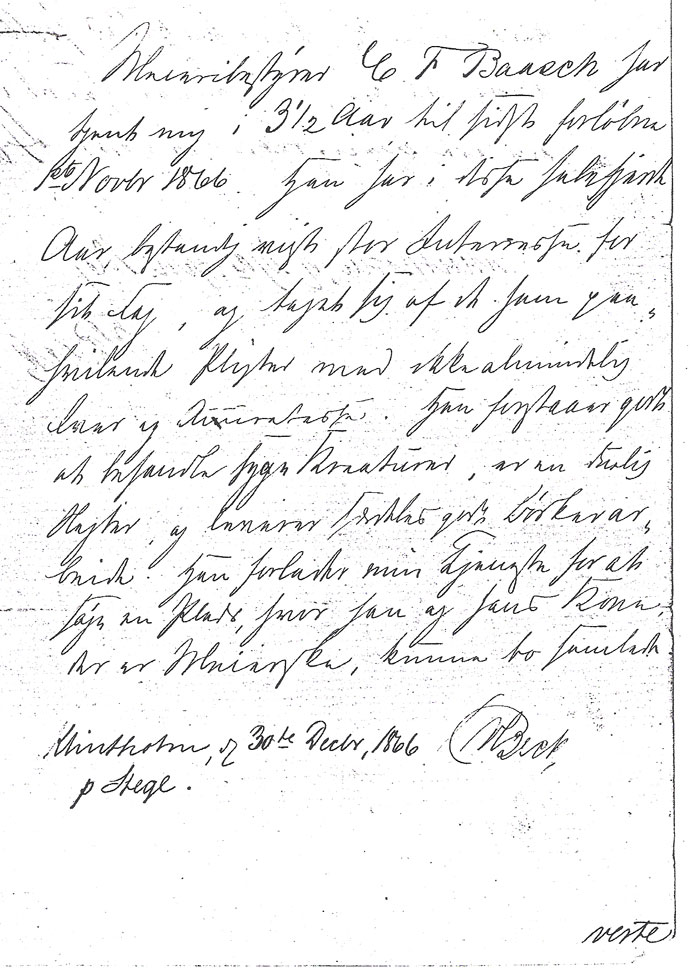 Meieribestyrer C F Baasch har
tjent mig i 3 1/2 Aar til sidst forløbne
1ste Novbr 1866. Han har i disse halvfjerde
Aar bestandig viist stor Interesse for
sit Fag, og taget sig af de ham paa-
hvilende Pligter med ikke almindelig
Iver og Accuratesse. Han forstaaer godt
at behandle syge Kreaturer, er en duelig
og leverer særdeles godt Bødkerar-
beide. Han forlader min Tjeneste for at
søge en Plads, hvor han og hans Kone,
der er Meierske, kunne bo samlede.
Klintholm, d 30te Decbr, 1866 Beck,
p Stege.
verte